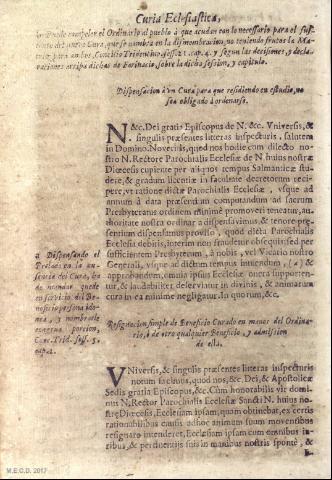 Curia Eclesiastica,
la Puede compeler el Ordinario al pueblo à que acudan con lo necessario para el sus-
tento del nuevo Cura, que se nombra en la dismembracion, no teniendo frutos la Ma-
triz para ambos, Concilio Tridentino, sess. 21. cap. 4. y segun las decisiones, y decla-
raciones arriba dichas de Farinacio, sobre la dicha session, y capitulo.
Dispensacion à un Cura para que residiendo en estudio, no
sea obligado à ordenarse.
N &c. Dei gratia Episcopus de N. &c. Vniversis, &
singulis præsentes litteras inspecturis, salutem
in Domino. Noveritis, quod nos hodie cum dilecto no-
stro N. Rectore Parochialis Ecclesiæ de N. huius nostræ
Diœcesis cupiente per aliquos tempus Salmanticæ stu-
dere, & gradum licentiæ in facultate decretorum reci-
pere, vt ratione dictæ Parochialis Ecclesiæ, vsque ad
annum à data præsentium computandum ad sacrum
Presbyteratus ordinem minimè promoveri teneatur, au-
thoritate nostra ordinaria dispensavimus, & tenore præ-
sentium dispensamus proviso, quod dicta Parochialis
Ecclesia debitis, interim non fraudetur obsequijs, sed per
sufficientem Presbyterum, à nobis, vel Vicario nostro
Generali, vsque ad dictum tempus instituendum, (a) &
approbandum, omnia ipsius Ecclesiæ onera supporten-
tur, & laudabiliter deserviatur in divinis, & animarum
cura in ea minimè negligatur. In quorum, &c.
a Dispensando el
Prelado en la au-
sencia del Cura, ha
de mandar quede
en servicio del Be-
neficio persona ido-
nea, y nombrarle
congrua porcion,
Conc. Trid. sess. 5.
cap. 1.
Resignacion simple de Beneficio Curado en manos del Ordina-
rio, ò de otro qualquier Beneficio, y admission
de ella.
VNiversis, & singulis præsentes litteras inspecturis
notum facimus, quod nos, &c. Dei, & Apostolicæ
Sedis gratia Episcopus, &c. Cum honorabilis vir domi-
nus N. Rector Parochialis Ecclesiæ Sancti N. huius no-
stræ Diœcesis, Ecclesiam ipsam, quam obtinebat, ex certis
rationabilibus causis adhoc animum suum moventibus
resignare intenderet, Ecclesiam ipsam cum omnibus iu-
ribus, & pertinentijs suis in manibus nostris spontè, &
M.E.C.D. 2017